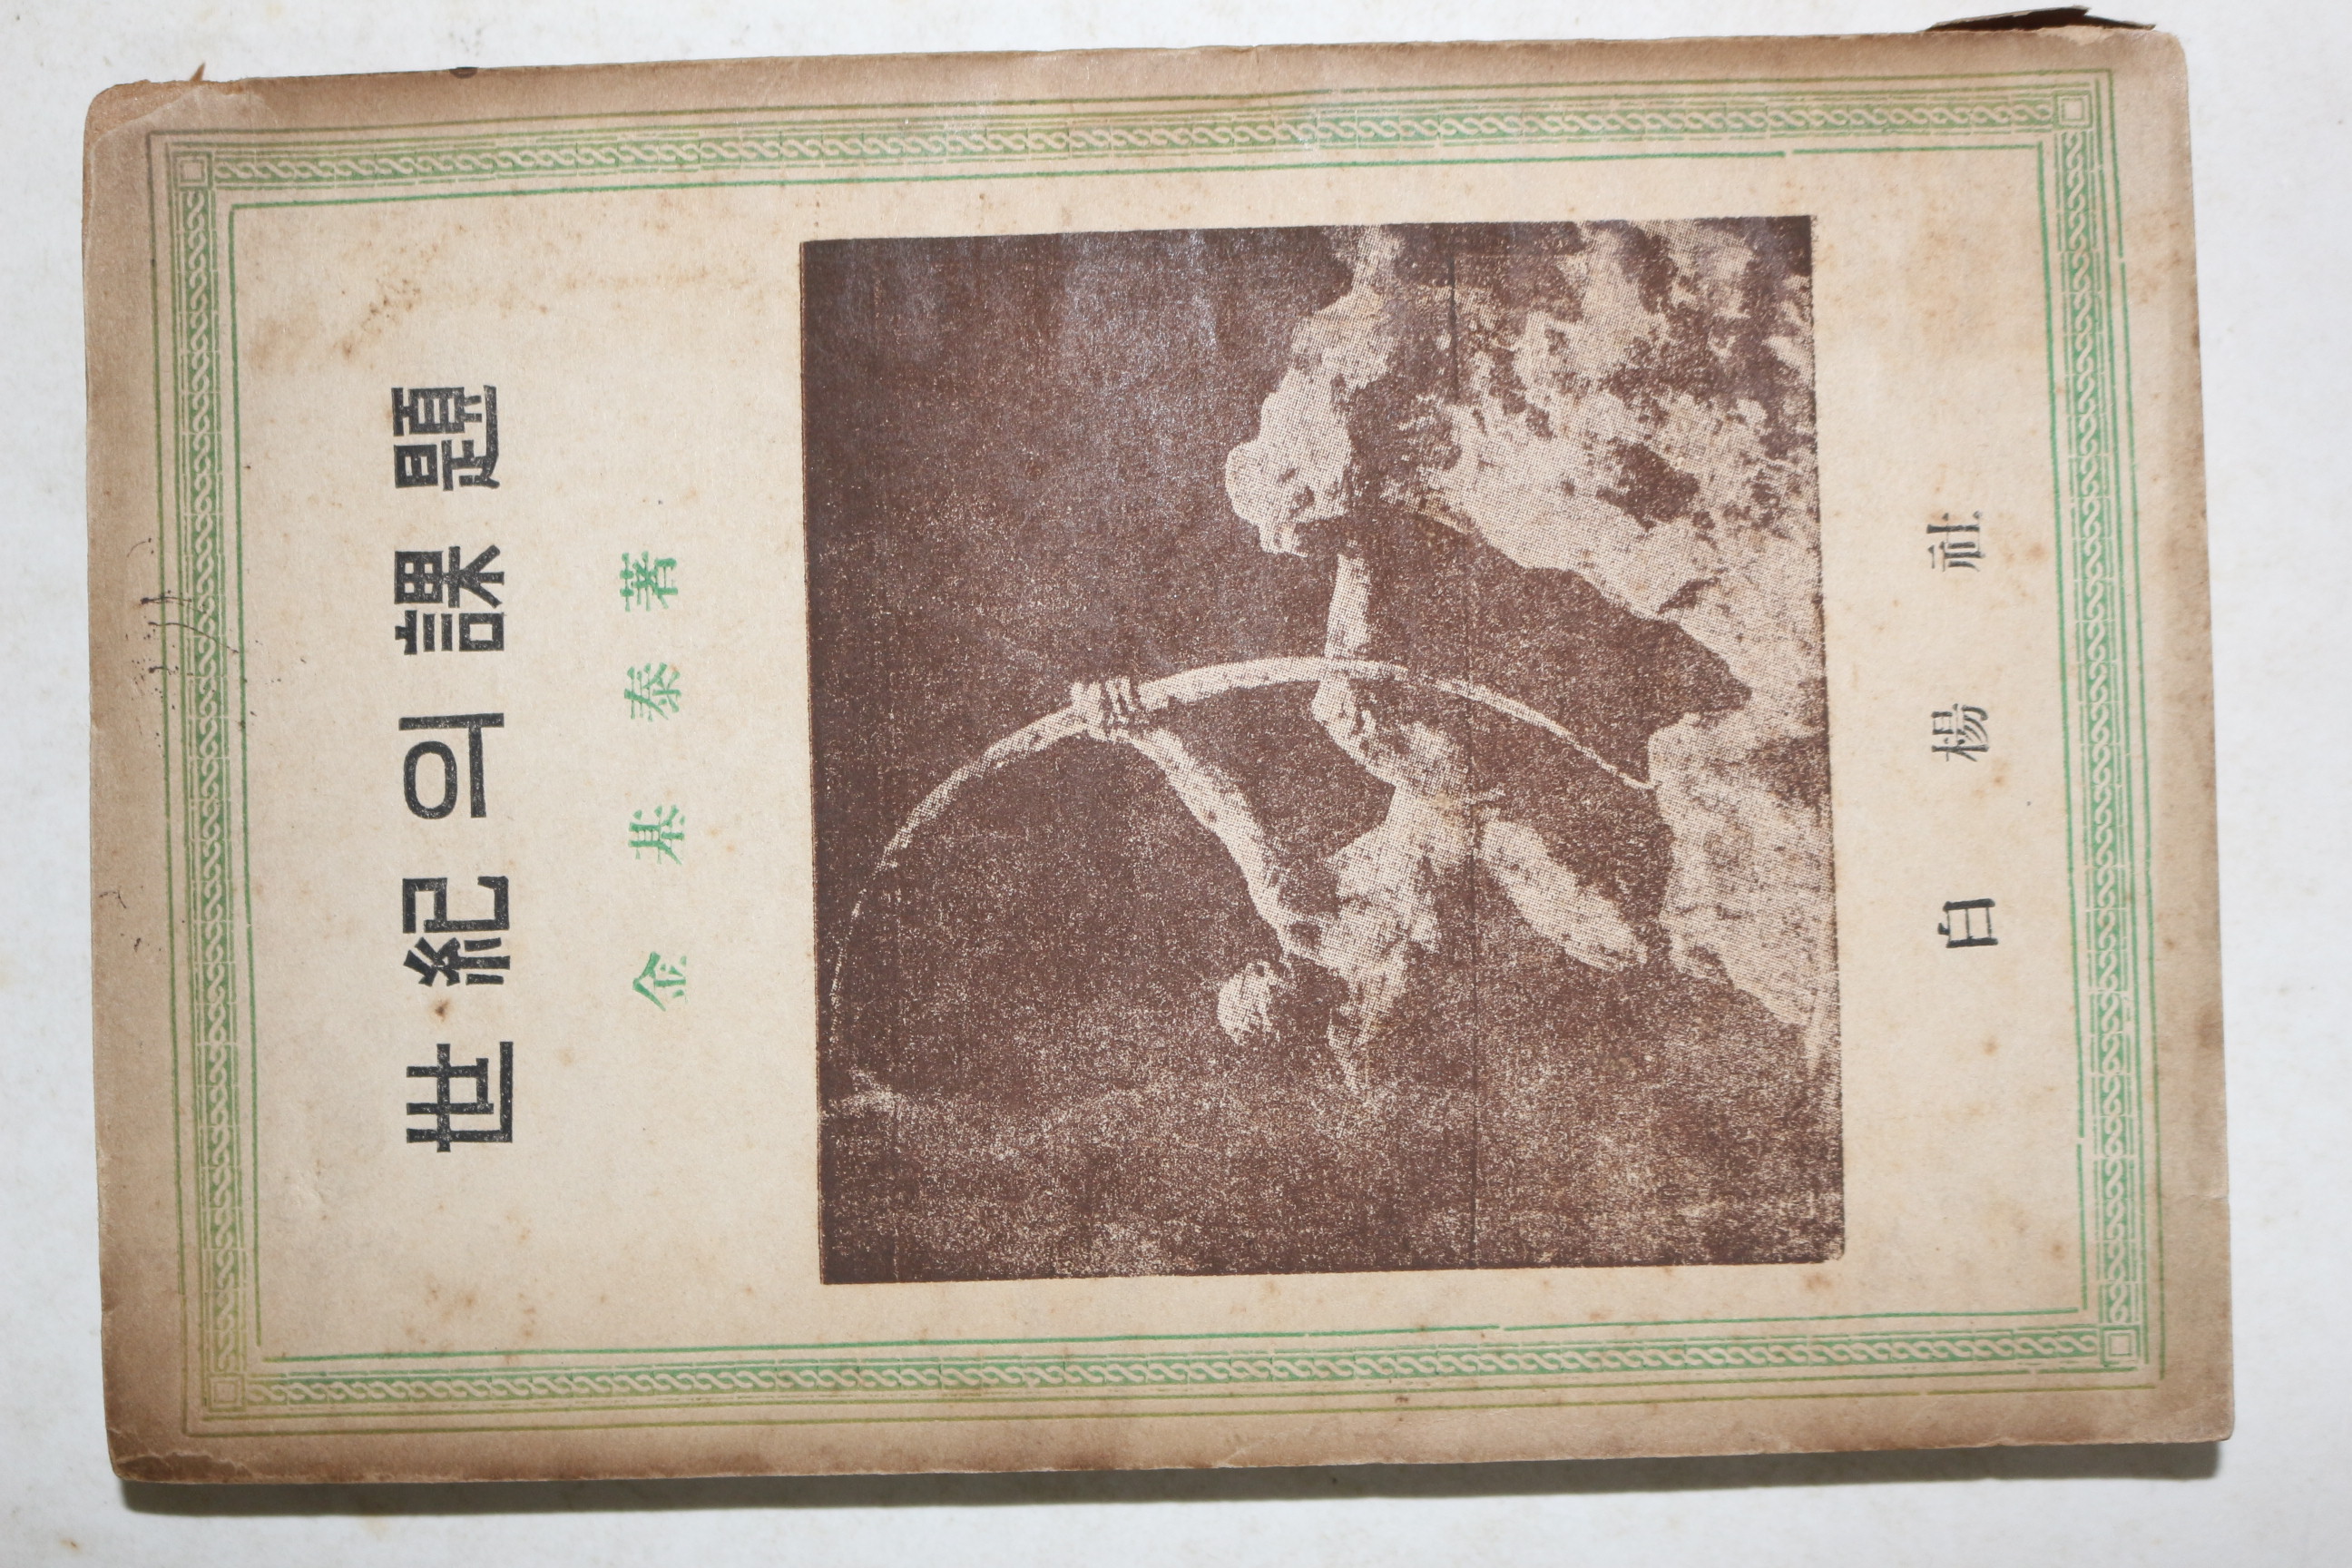 世紀의課題
金基泰著
白楊社